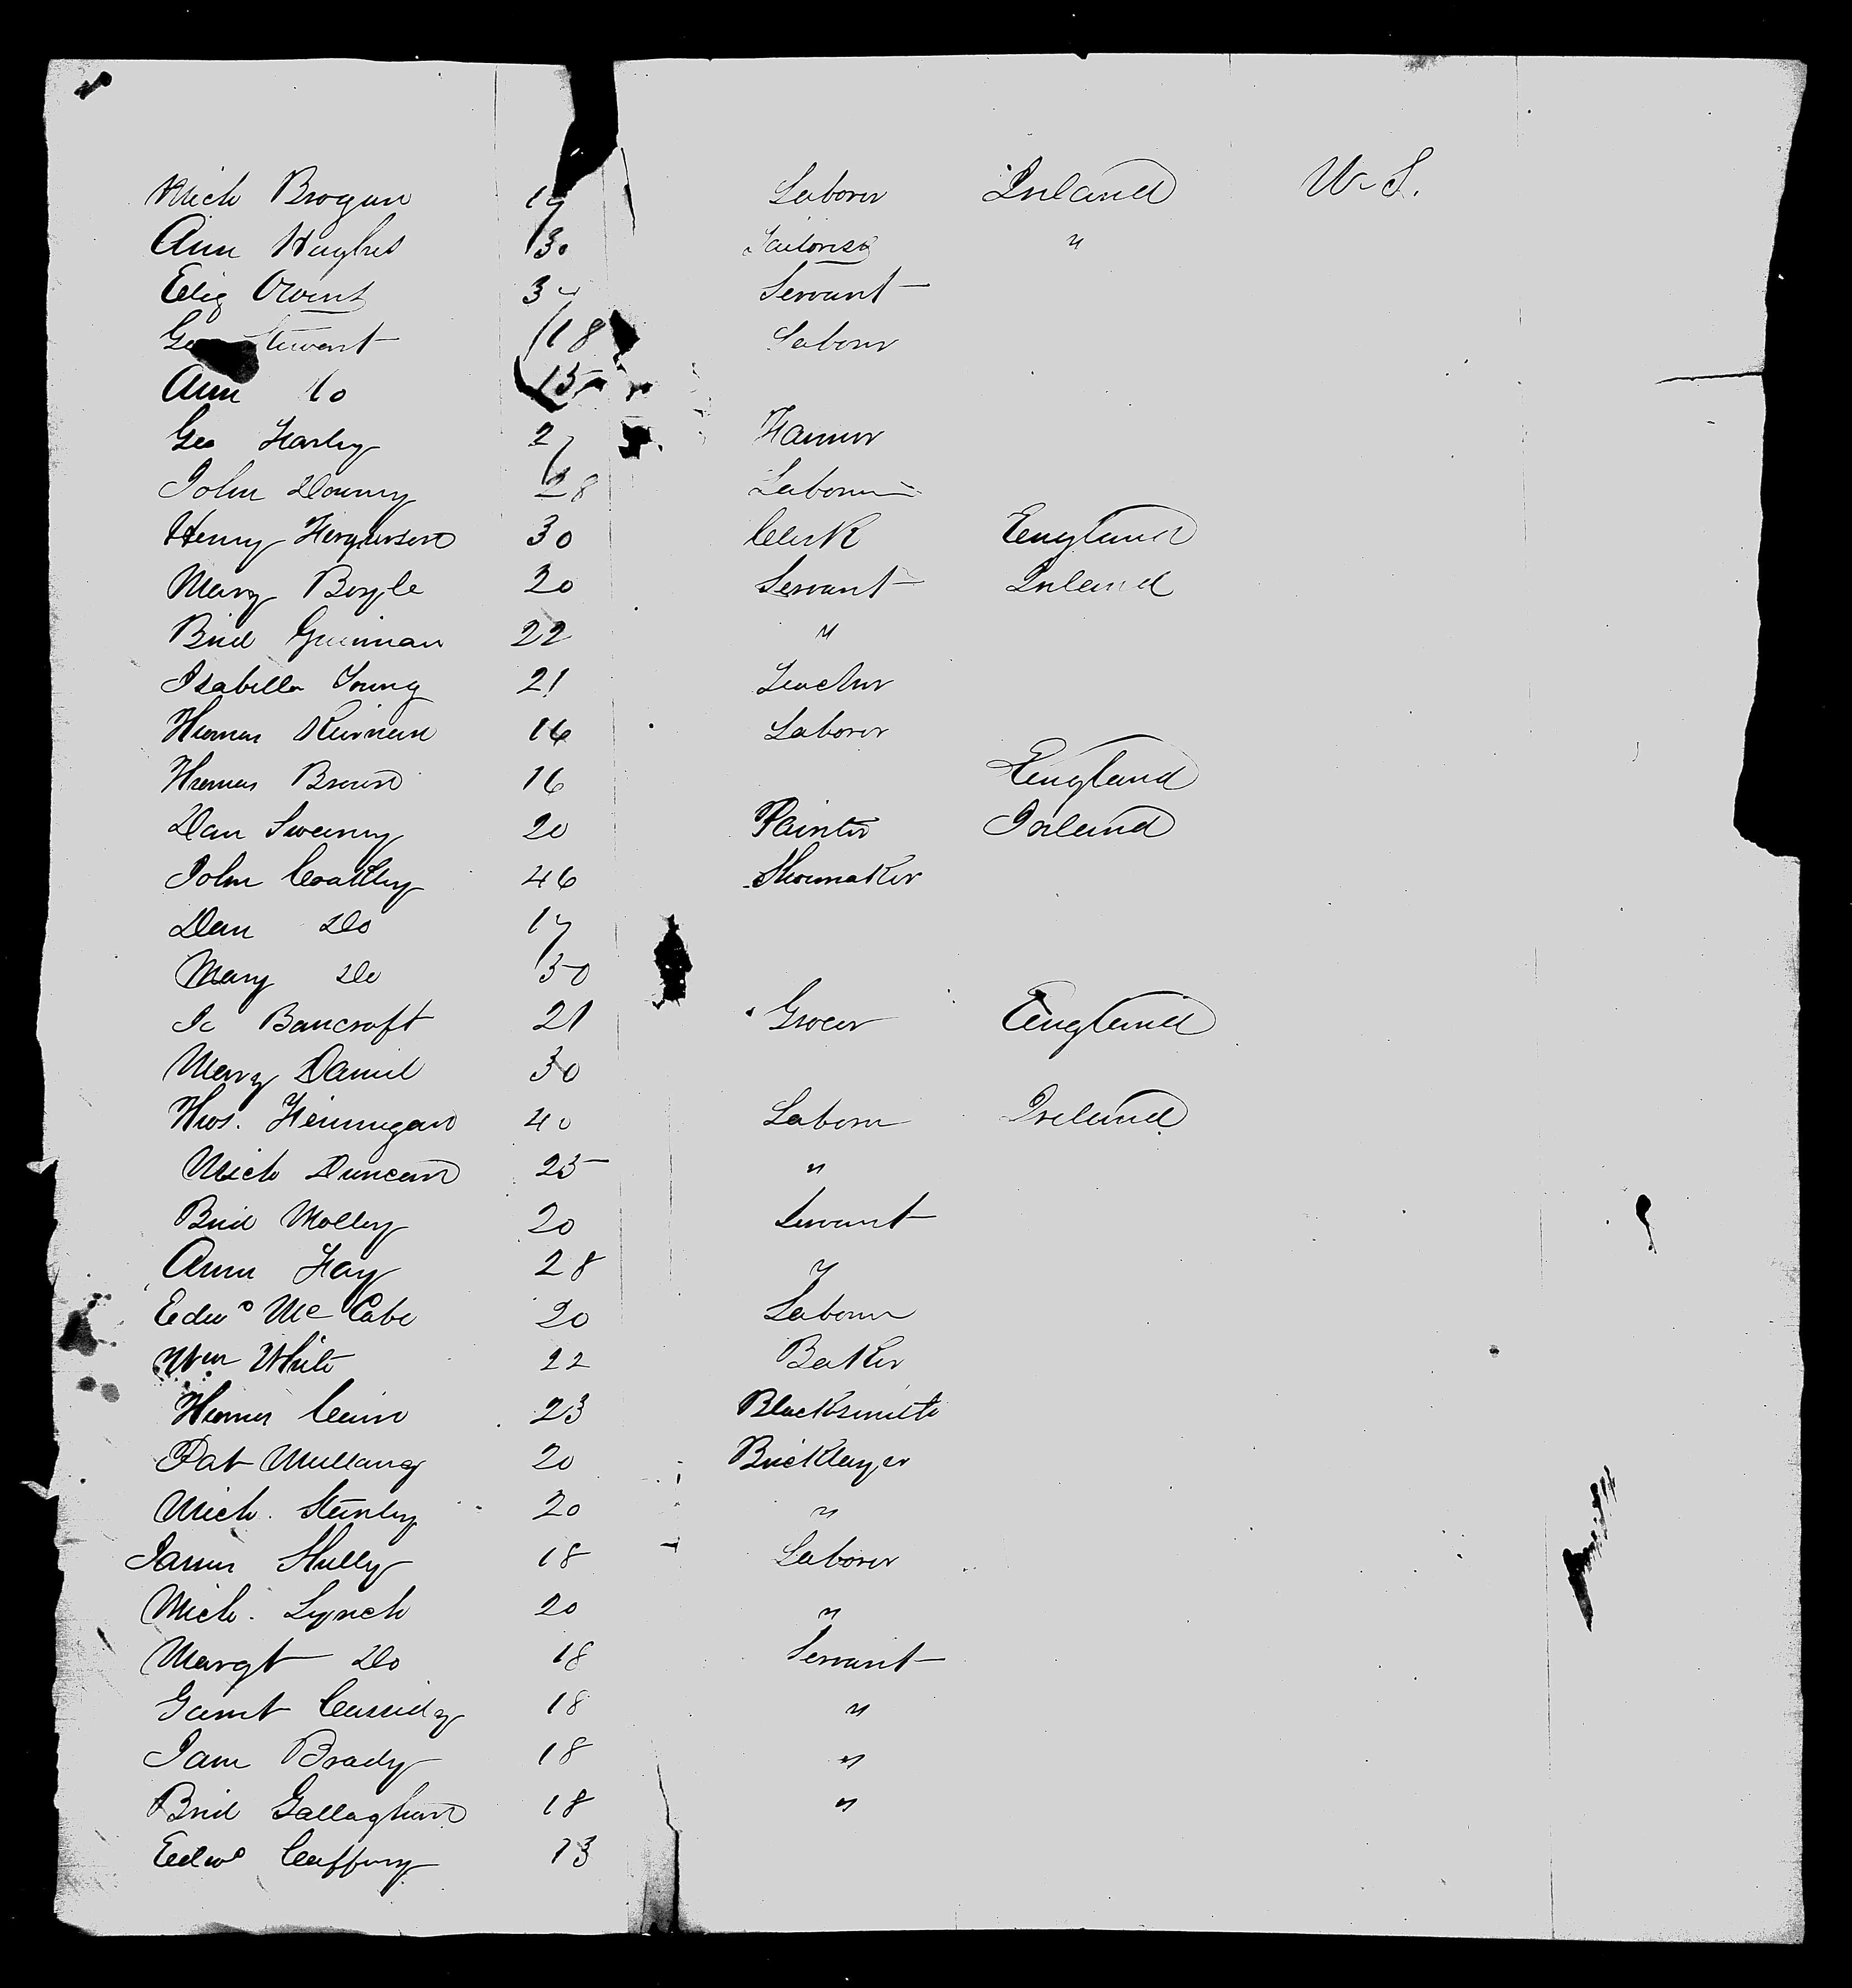 Mich Brogan 19 Laborer Ireland U.S.
Ann Hughes 30 Tailoress "
Eliz Owens 34 Servant
Geo Stewart 18 Laborer
Ann Do 15
Geo Farley 27 Farmer
John Downy 28 Laborer
Henry Fergusson 30 Clerk England
Mary Boyle 20 Servant Ireland
Brid 22 "
Isabella Young 21 Teacher
Thomas Kiernan 16 Laborer
Thomas Brown 16 England
Dan Sweeny 20 Painter Ireland
John Coakley 46 Shoemaker
Dan Do 17
Mary Do 50
Bancroft 21 Grocer England
Mary Daniel 30
Thos. Finnegan 40 Laborer Ireland
Mich Duncan 25 "
Brid Molloy 20 Servant
Ann Fay 28 "
Edwd McCabe 20 Laborer
Wm White 22 Baker
Thomas 23 Blacksmith
Pat Mullany 20 Bricklayer
Mich. Stanley 20 "
James Skelly 18 Laborer
Mich. Lynch 20 "
Margt Do 18 Servant
Cassidy 18 "
Jane Brady 18 "
Brid Gallaghan 18 "
Edwd Caffrey 13